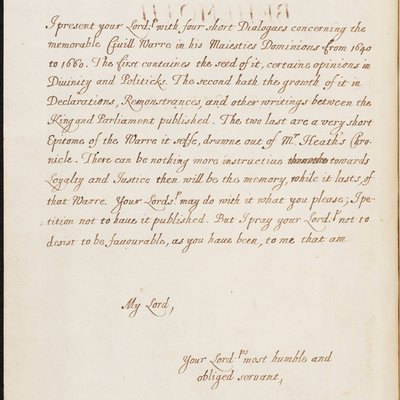 I present your Lord.ᵖ with four short Dialogues concerning the
memorable Civill Warre in his Maiesties Dominions from 1640
to 1660. The first containes the seed of it, certaine opinions in
Divinity and Politicks. The second hath the growth of it in
Declarations, Remonstrances, and other writings between the
King and Parliament published. The two last are a very short
Epitome of the Warre it selfe, drawne out of Mʳ Heath's Chro-
nicle. There can be nothing more instructive towards
Loyalty and Justice then will be the memory, while it lasts, of
that Warre. Your Lords.ᵖ may do with it what you please; I pe-
=tition not to have it published. But I pray your Lord.ᵖ not to
desist to be favourable, as you have been, to me that am
My Lord,
Your Lord.ᵖˢ most humble and
obliged servant,